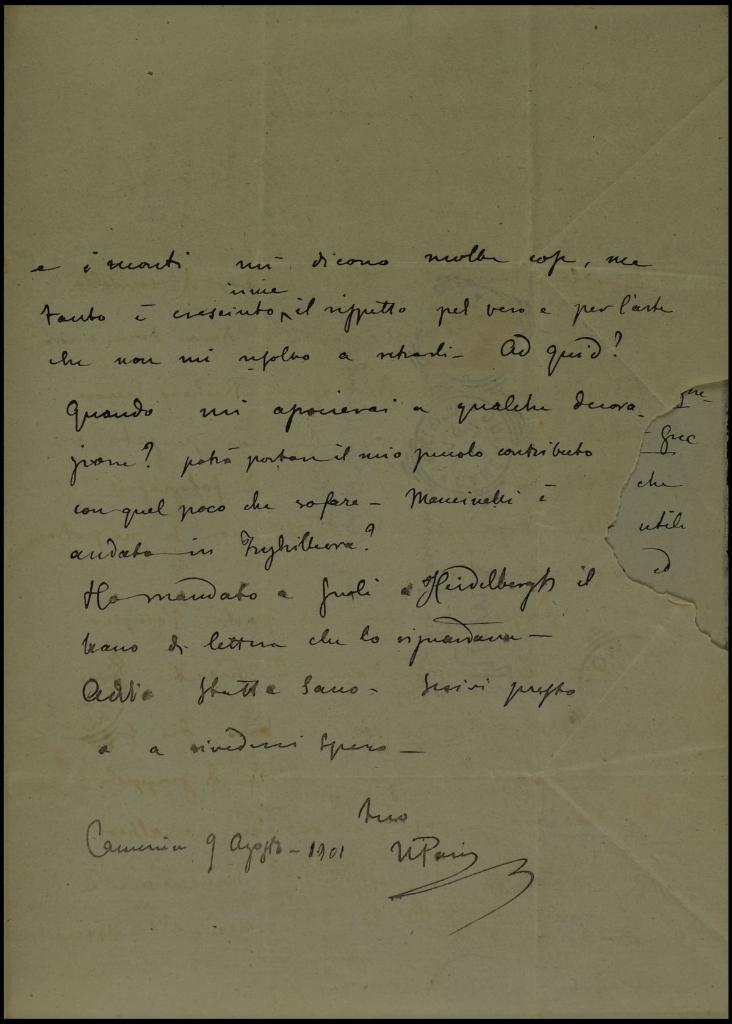 e i monti mi dicono molte cose, ma
tanto è cresciuto in me il rispetto pel vero e per l'arte
che non mi risolvo a ritrarli - Ad quid?
Quando mi assocerai a qualche decora-
zione? potrà portare il mio piccolo contributo
con quel poco che so fare - Mancinelli è
andato in Inghilterra?
Ho mandato a Gnoli a Heidelbergh il
brano di lettera che lo riguardava -
Addio sta sano - Scrivi presto
e a rivederci spero -
tuo
Camerino 9 Agosto - 1901
che
utile
ed